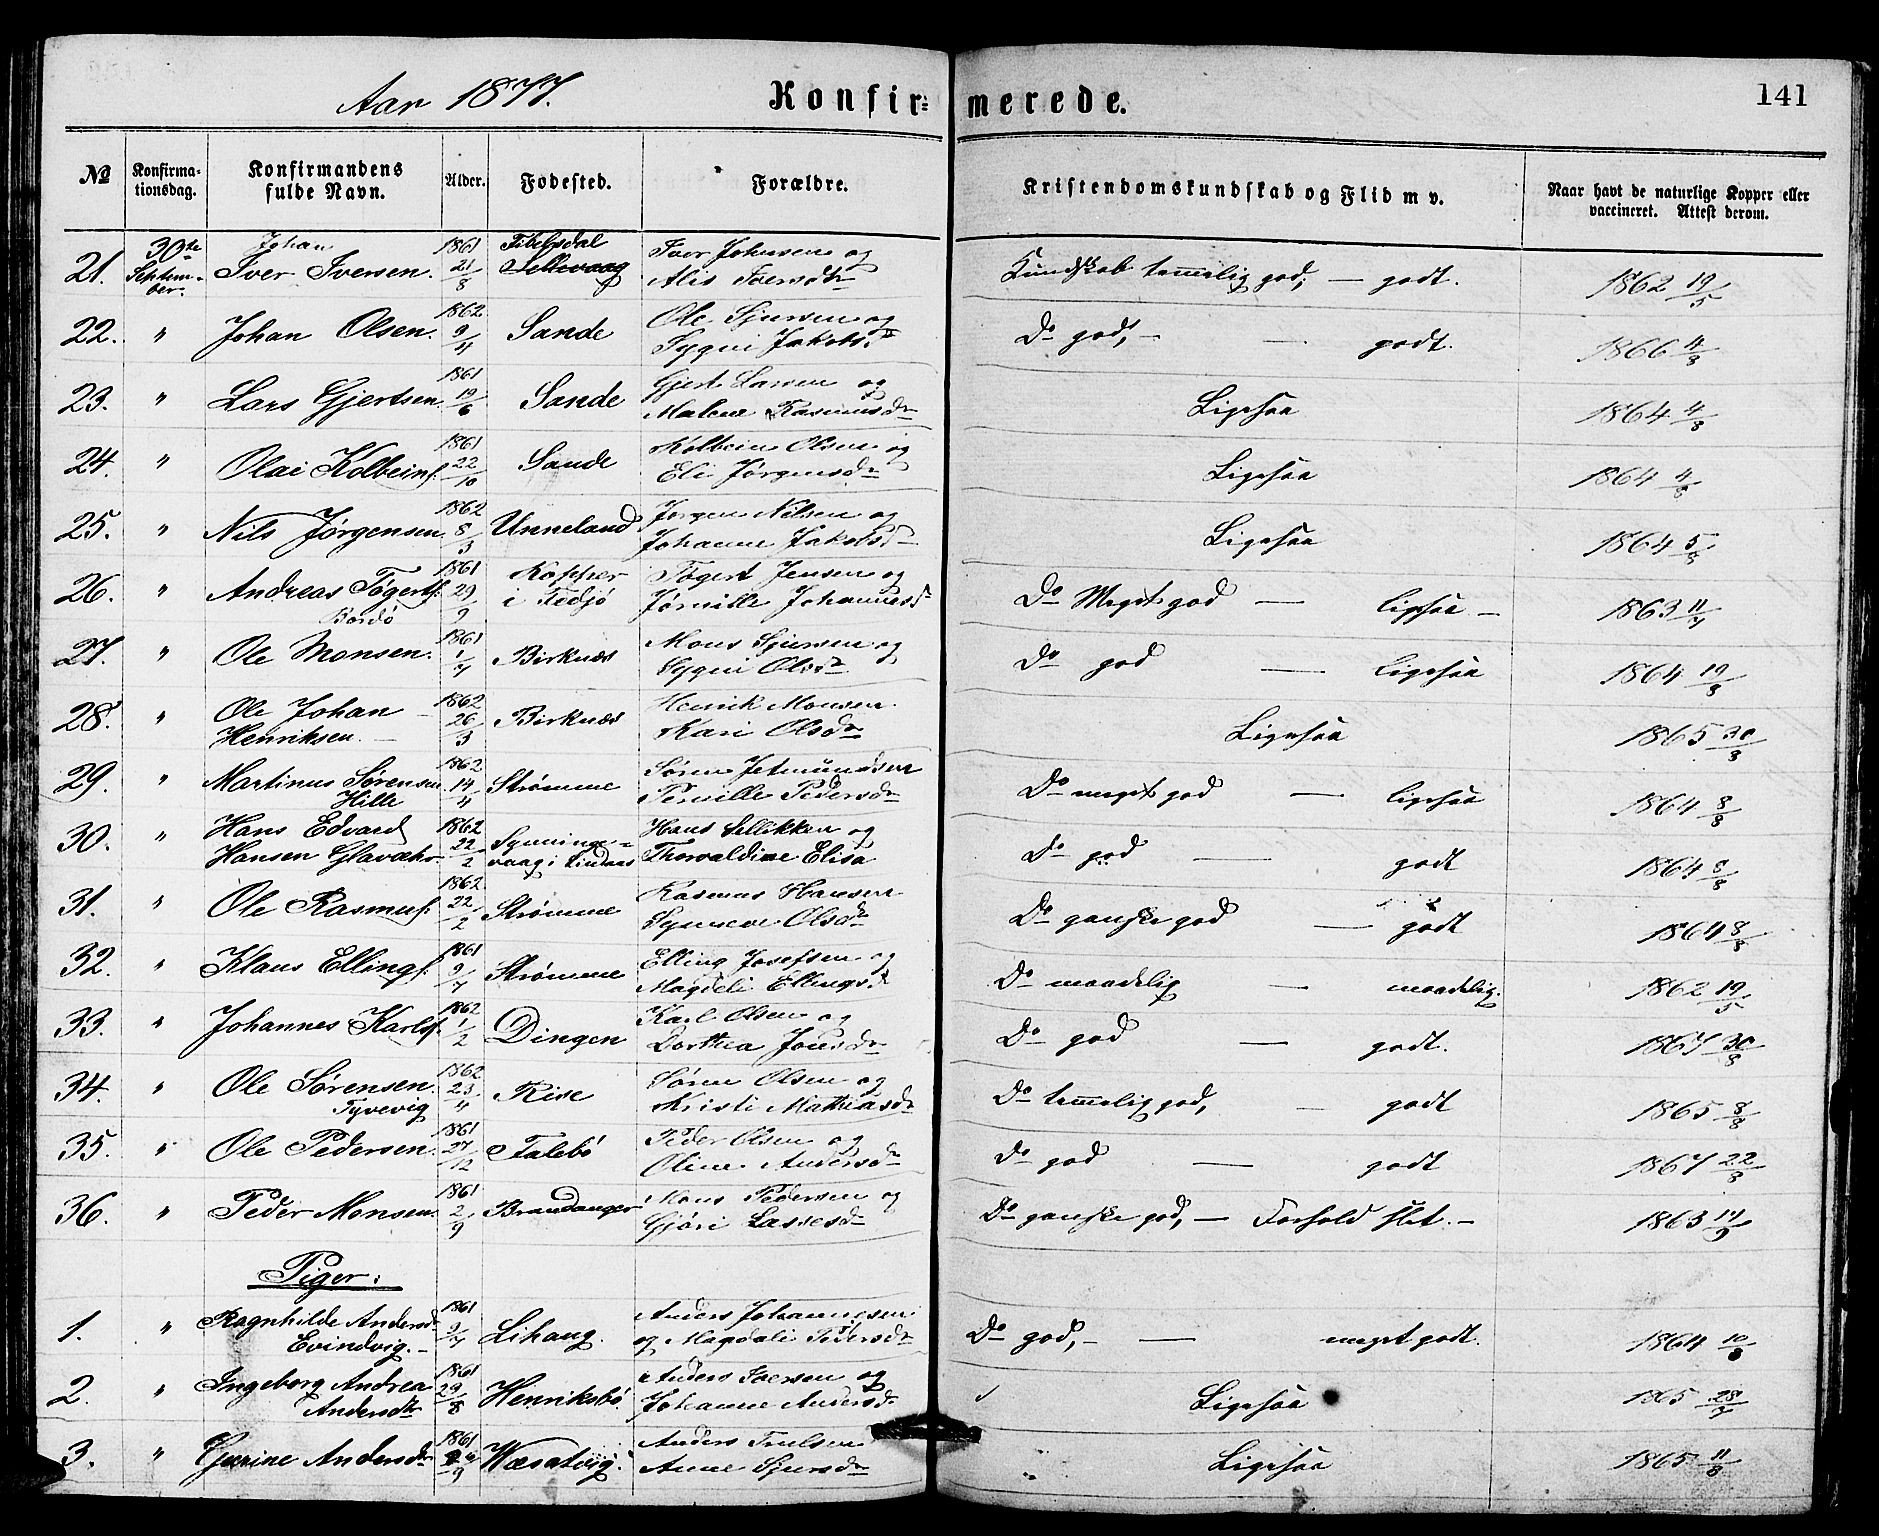 Aar 1877. Konfir- merede. 141
№ Konfirmationsdag. Konfirmandens fulde Navn. Alder. Fødested. Forældre. Kristendomskundskab og Flid m v. Naar havt de naturlige Kopper eller vaccineret. Attest derom.
21. 30te September. Johan Iver Iversen. 1861 21/8 Iver Johnsen og Kundskab temmelig god, — godt. 1862 19/5
22. " Johan Olsen. 1862 9/4 Sande Ole Sjursen og Sygni Jakobsd. Do god, — — godt. 1866 4/8
23. " Lars Gjertsen 1861 19/6 Sande Gjert Larsen og Malene Rasmusdr Ligesaa 1864 4/8
24. " Olai Kolbeins. 1861 22/10 Sande Kolbein Olsen og Eli Jørgensdr Ligesaa 1864 4/8
25. " Nils Jørgensen 1862 8/3 Unneland Jørgen Nilsen og Johanne Jakobsd Ligesaa 1864 5/8
26. " Andreas Tøgerts. Bordö 1861 29/9 Kopper i Fedjö Tøgert Jensen og Johannesd Do Meget god — ligesaa — 1863 11/7
27. " Ole Monsen. 1861 1/7 Birknæs Mons Sjursen og Sygni Olsdr Do god — ligesaa 1864 19/8
28. " Ole Johan — Henriksen. — 1862 26/3 Birknæs Henrik Monsen Kari Olsdr Ligesaa 1865 30/8
29. " Martinus Sørensen Hille 1862 14/4 Strømme Søren Jetmundsen Pernille Pedersdr Do meget god — ligesaa 1864 8/8
30. " Hans Edvard Hansen Glavæhr. 1862 22/2 i Lindaas Hans Sellikken og Thorvaldine Elisa Do god — godt 1864 8/8
31. " Ole Rasmus. 1862 22/2 Strømme Rasmus Hansen Synneve Olsdr Do ganske god — godt 1864 8/8
32. " Klaus Ellings. 1861 9/7 Strømme Elling Josefsen og Magdeli Ellingsd Do maadelig — maadelig. 1862 19/5
33. " Johannes Karls. 1862 1/2 Dingen Karl Olsen og Dorthea Jonsdr Do god — godt. 1867 30/8
34. " Ole Sørensen. Tyvevig 1862 23/4 Rise Søren Olsen og Kristi Mathiasdr Do temmelig god, — godt 1865 8/8
35. " Ole Pedersen. 1861 27/12 Talebö Peder Olsen og Oline Andersdr Do god — godt 1867 22/8
36. " Peder Monsen. 1861 2/9 Brandanger Mons Pedersen og Gjøri Lassesdr Do ganske god, — Forhold slet. — 1863 17/9
Piger:
1. " Ragnhilde Andersdr Evindvig. — 1861 9/7 Lihaug. Anders Johannesen og Magdali Pedersdr Do god, — — meget godt. 1864 10/8
2. " Ingeborg Andrea Andersdtr 1861 29/8 Henriksbö Anders Iversen og Johanne Andersd Ligesaa 1865 28/7
3. " Gjerine Andersdr 1861 Anders Trulsen Anne Sjursdr " Ligesaa 1865 11/8